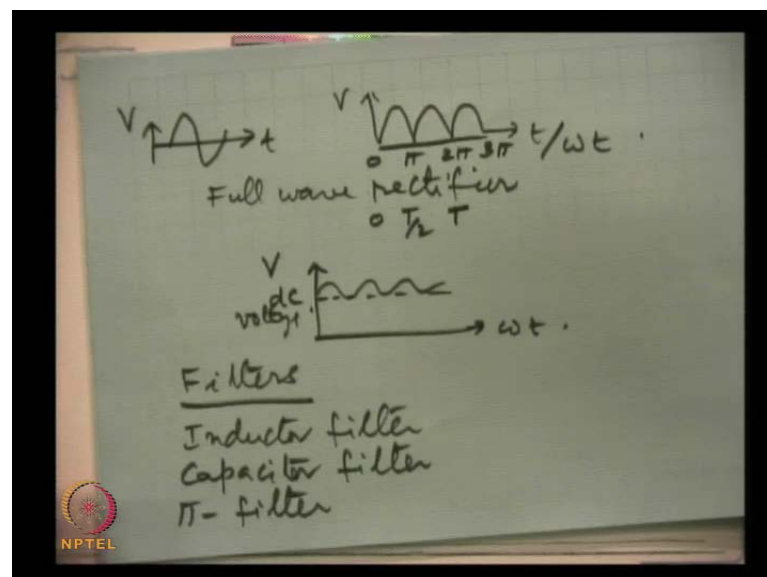 V t V t/ωt .
0 π 2π 3π
Full wave rectifier
0 T/2 T
V
dc
voltage. ωt .
Filters
Inductor filter
Capacitor filter
π- filter
NPTEL